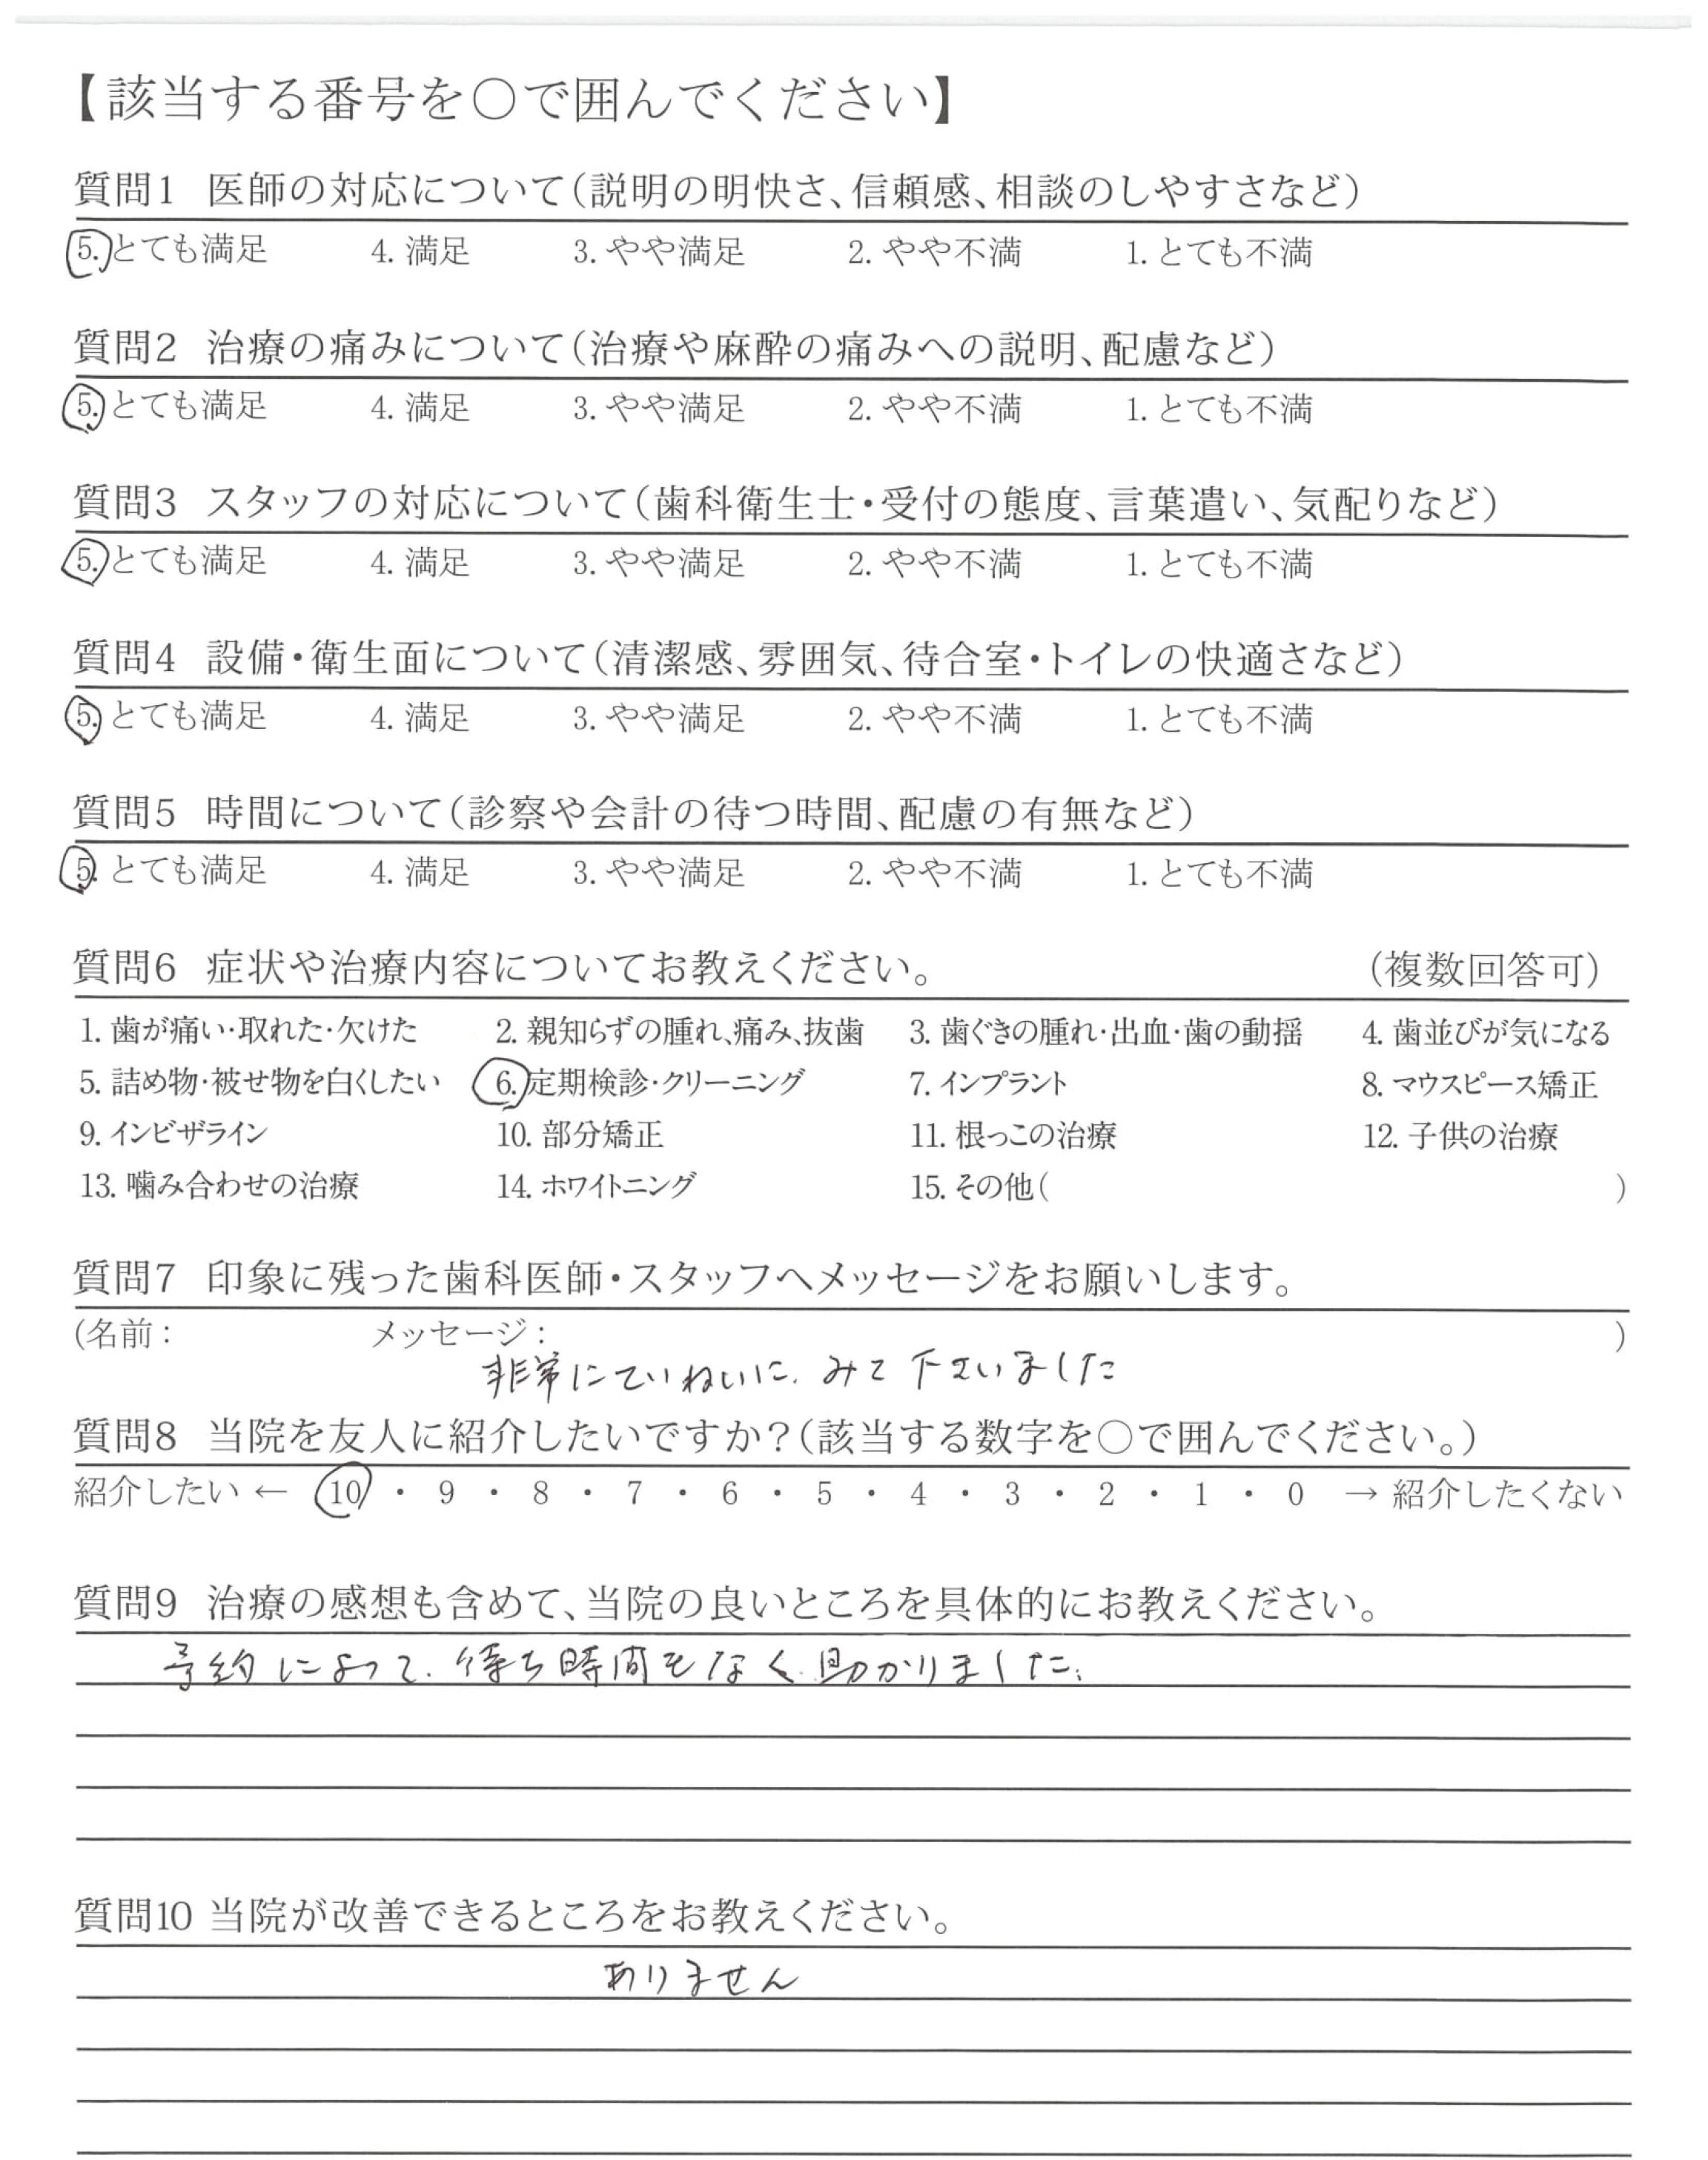 【該当する番号を○で囲んでください】
質問1 医師の対応について(説明の明快さ、信頼感、相談のしやすさなど)
5. とても満足 4. 満足 3. やや満足 2. やや不満 1. とても不満
質問2 治療の痛みについて(治療や麻酔の痛みへの説明、配慮など)
5. とても満足 4. 満足 3. やや満足 2. やや不満 1. とても不満
質問3 スタッフの対応について(歯科衛生士・受付の態度、言葉遣い、気配りなど)
5. とても満足 4. 満足 3. やや満足 2. やや不満 1. とても不満
質問4 設備・衛生面について(清潔感、雰囲気、待合室・トイレの快適さなど)
5. とても満足 4. 満足 3. やや満足 2. やや不満 1. とても不満
質問5 時間について(診察や会計の待つ時間、配慮の有無など)
5. とても満足 4. 満足 3. やや満足 2. やや不満 1. とても不満
質問6 症状や治療内容についてお教えください。 (複数回答可)
1. 歯が痛い・取れた・欠けた 2. 親知らずの腫れ、痛み、抜歯 3. 歯ぐきの腫れ・出血・歯の動揺 4. 歯並びが気になる
5. 詰め物・被せ物を白くしたい 6. 定期検診・クリーニング 7. インプラント 8. マウスピース矯正
9. インビザライン 10. 部分矯正 11. 根っこの治療 12. 子供の治療
13. 噛み合わせの治療 14. ホワイトニング 15. その他( )
質問7 印象に残った歯科医師・スタッフへメッセージをお願いします。
(名前: メッセージ: )
非常にていねいに、みて下さいました
質問8 当院を友人に紹介したいですか?(該当する数字を○で囲んでください。)
紹介したい ← 10 ・ 9 ・ 8 ・ 7 ・ 6 ・ 5 ・ 4 ・ 3 ・ 2 ・ 1 ・ 0 → 紹介したくない
質問9 治療の感想も含めて、当院の良いところを具体的にお教えください。
予約によって、待ち時間もなく、助かりました。
質問10 当院が改善できるところをお教えください。
ありません